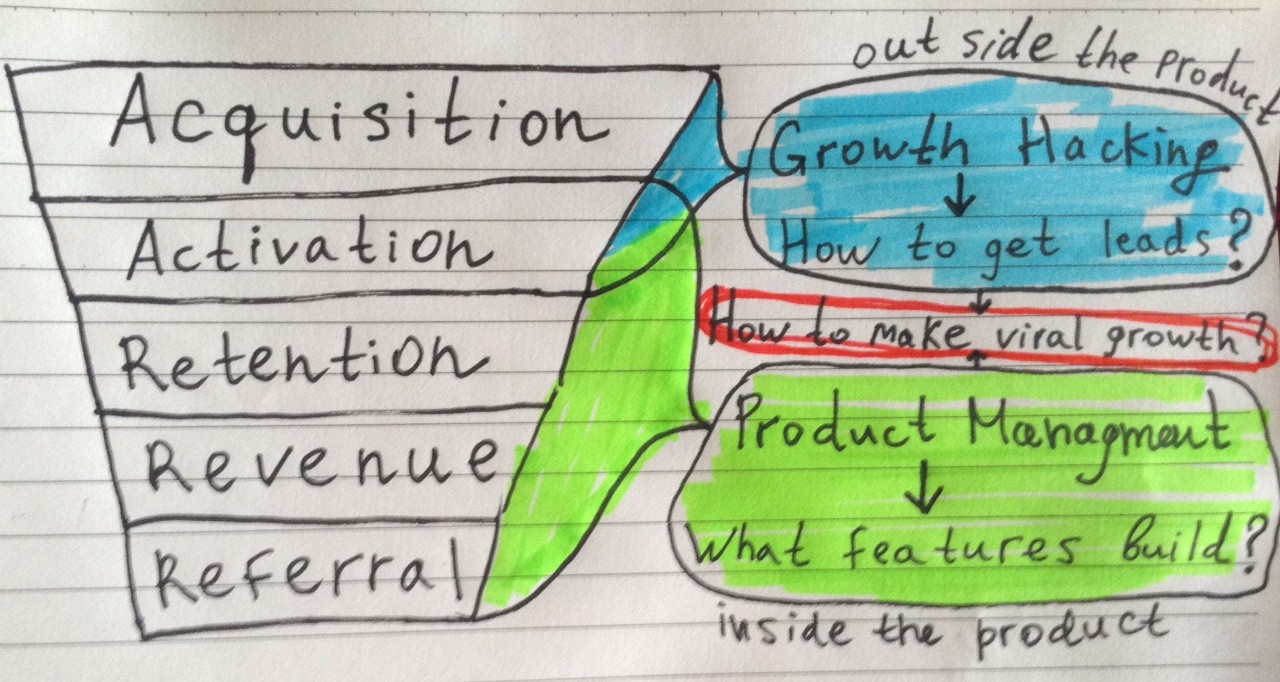 Acquisition
Activation
Retention
Revenue
Referral
out side the product
Growth Hacking
How to get leads?
How to make viral growth?
Product Managment
What features build?
inside the product